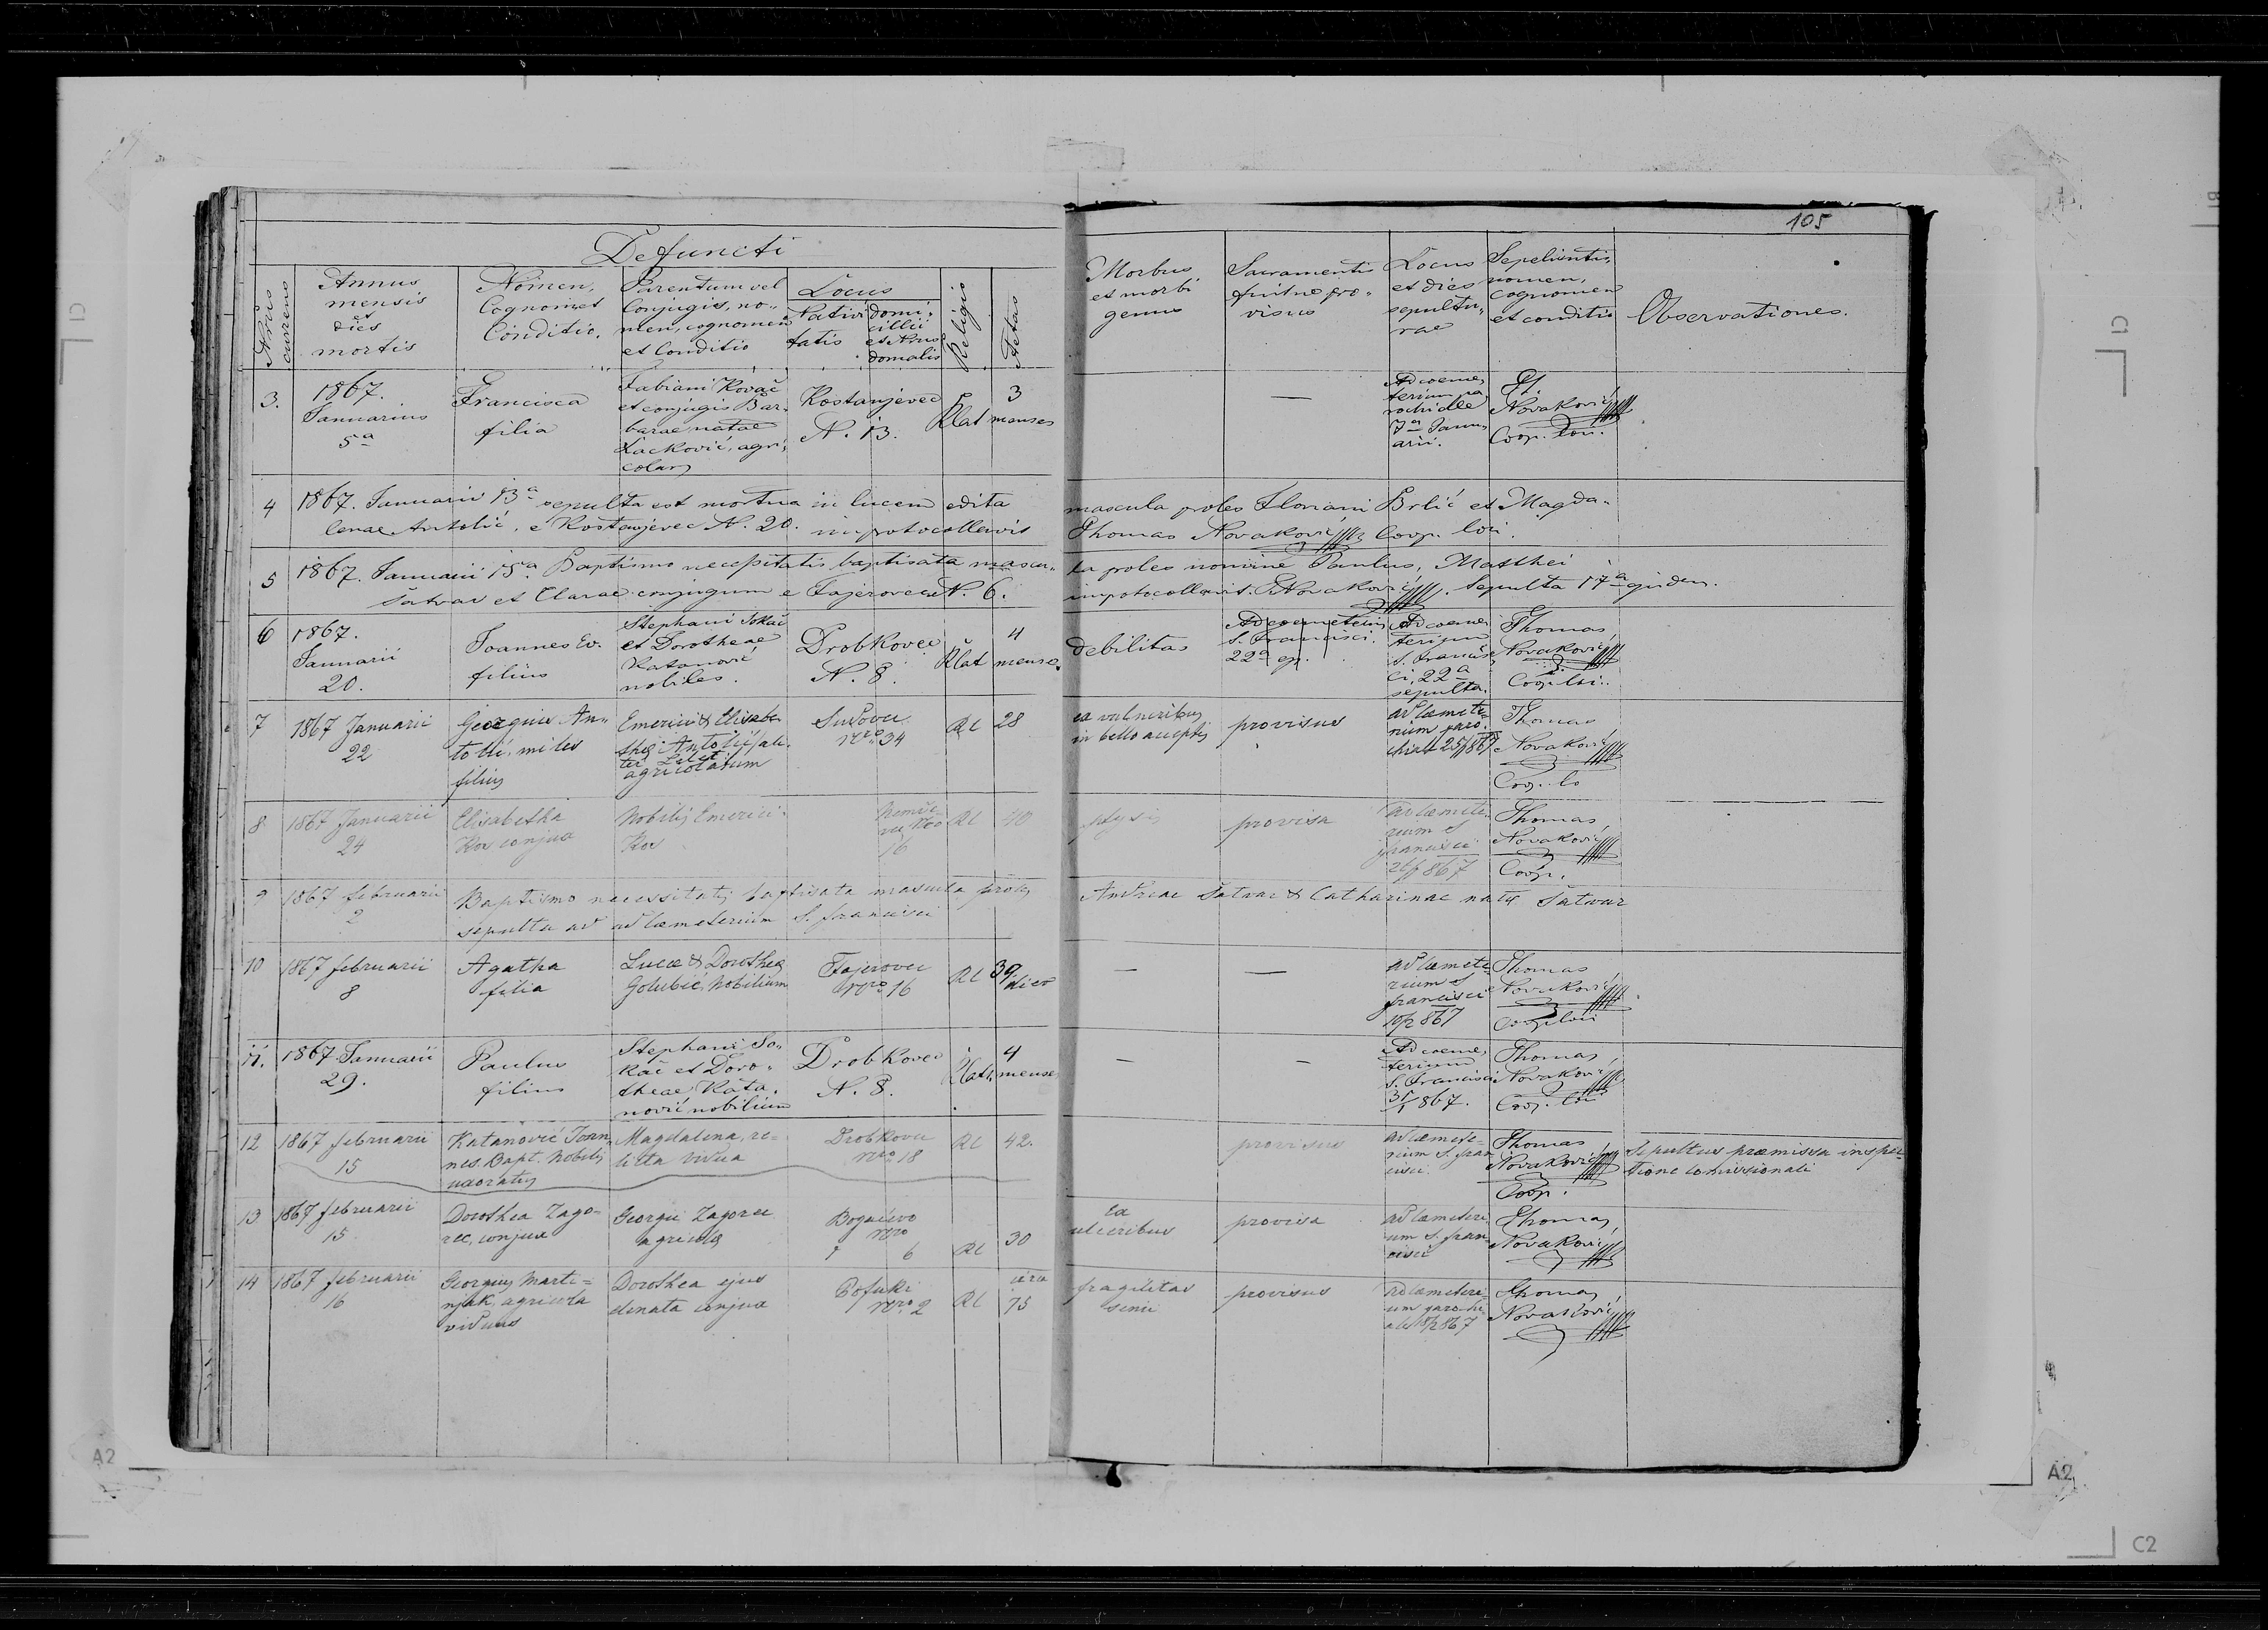 105
Defuncti
Nrus currens
Annus
mensis
et
dies
mortis
Nomen,
Cognomen et
Conditio.
Parentum vel
Conjugis, no„
men, cognomen
et Conditio
Locus
Nativi
tatis
domi„
cillii
et Nrus
domalis
Religio
Aetas
Morbus
et morbi
genus
Sacramentis
fuitne pro„
visus
Locus
et dies
sepultu„
rae
Sepelientis,
nomen,
cognomen
et conditio
Observationes.
3.
1867.
Januarius
5a
Francisca
filia
Fabiani Kovač
et conjugis Bar„
barae natae
Lacković, agri„
colar
Kostanjevec
N. 13.
Rlat
3
menses
—
Ad coeme„
terium pa
rochiale
7a Janu„
arii.
Th.
Novaković
Coop. loci.
4
1867. Januarii 13a sepulta est mortua in lucem edita mascula proles Floriani Brlić et Magda„
lenae Antolić, e Kostanjevec N. 20. inprotocollavit Thomas Novaković Coop. loci.
5
1867. Januarii 15a Baptismo necessitatis baptisata mascu„ la proles nomine Paulus, Matthei
Šatvar et Clarae conjugum e Fajerovec N. 6. inprotocollavit T. Novaković. Sepulta 17a ejusdem.
6
1867.
Januarii
20.
Joannes Ev.
filius
Stephani Sokač
et Dorotheae
Katanović
nobiles.
Drobkovec
N. 8.
Rlat
4
mense.
debilitas
Ad coemeterium
S. Francisci.
22a
Ad coeme
terium
S. Francis
ci, 22a
sepulta.
Thomas
Novaković
Coop. loci.
7
1867 Januarii
22
Georgius An„
tolić, miles
filius
Emerici & Elisabe
thae Antolić ali
ter
agricolarum
Sudovec
Nro 34
RC
28
ex vulneribus
in bello acceptis
provisus
ad coemete
rium paro
chiale 25/1 867
Thomas
Novaković
Coop. lo
8
1867 Januarii
24
Elisabetha
Kos conjux
Nobilis Emerici
Kos
16
RC
40
ptysis
provisa
ad coemete
rium S
francisci
867
Thomas
Novaković
Coop.
9
1867 februarii
2
Baptismo necessitatis baptisata mascula proles Andreae Šatvar & Catharinae natae Šatvar
sepulta ad ad coemeterium S. francisci
10
1867 februarii
8
Agatha
filia
Lucae & Dorothea
Golubić, Nobilium
Fajerovec
Nro 16
RC
39
dies
—
—
ad coemete
rium S
francisci
10/2 867
Thomas
Novaković
Coop loci
11.
1867. Januarii
29.
Paulus
filius
Stephani So„
kač et Doro„
theae Kata„
nović nobilium
Drobkovec
N. 8.
Rlat.
4
mense
—
—
Ad coeme„
terium
S. Francisci
31/1 867.
Thomas
Novaković
Coop. loci
12
1867 februarii
15
Katanović Joan„
nes Bapt. Nobilis
uxoratus
Magdalena, re=
licta vidua
Drobkovec
Nro 18
RC
42.
provisus
ad coemete=
rium S. fran
cisci
Thomas
Novaković
Coop.
Sepultus praemissa inspec=
tione comissionali
13
1867 februarii
15
Dorothea Zago=
rec, conjux
Georgii Zagorec
agricola
Bogačevo
Nro
6
RC
30
ex
ulceribus
provisa
ad coemeteri
um S. fran
cisci
Thomas
Novaković
14
1867 februarii
16
Georgius Marti=
njak, agricola
viduus
Dorothea ejus
denata conjux
Nro 2
RC
circa
75
fragilitas
senii
provisus
ad coemeteri
um parochi
ale 18/2 867
Thomas
Novaković
A2
A2
C1
C1
C2
B1